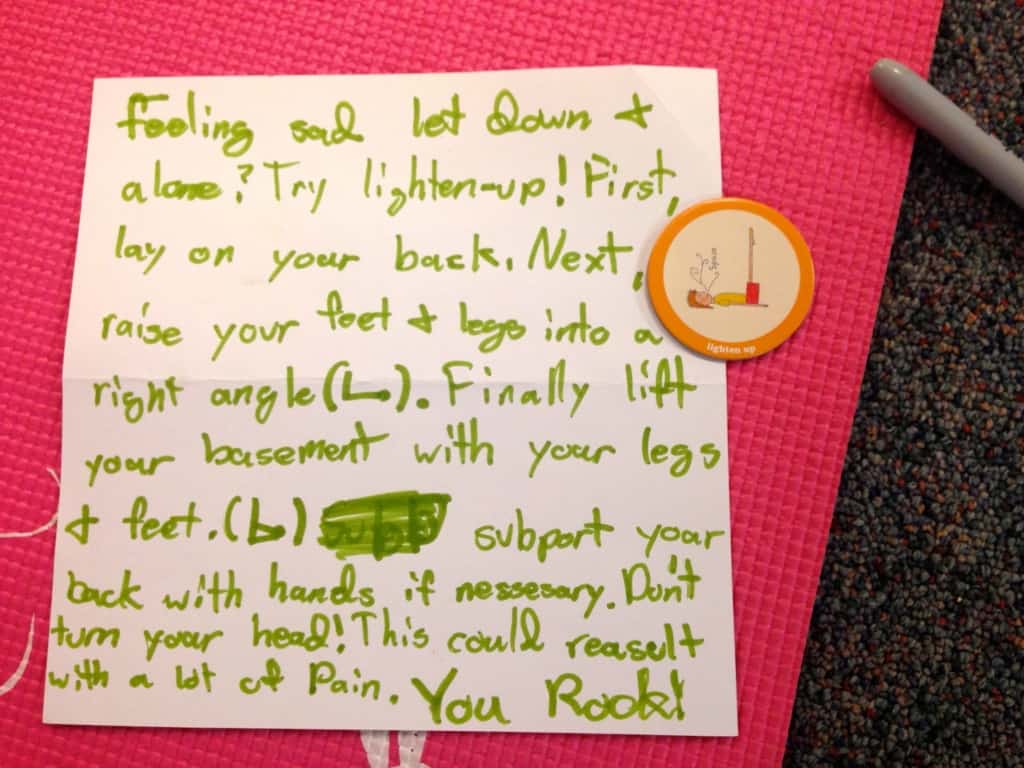 feeling sad let down &
alone? Try lighten-up! First,
lay on your back. Next,
raise your feet & legs into a
right angle (L). Finally lift
your basement with your legs
& feet. (b) subport your
back with hands if nessesary. Don't
turn your head! This could reasult
with a lot of Pain. You Rock!
Space
lighten up